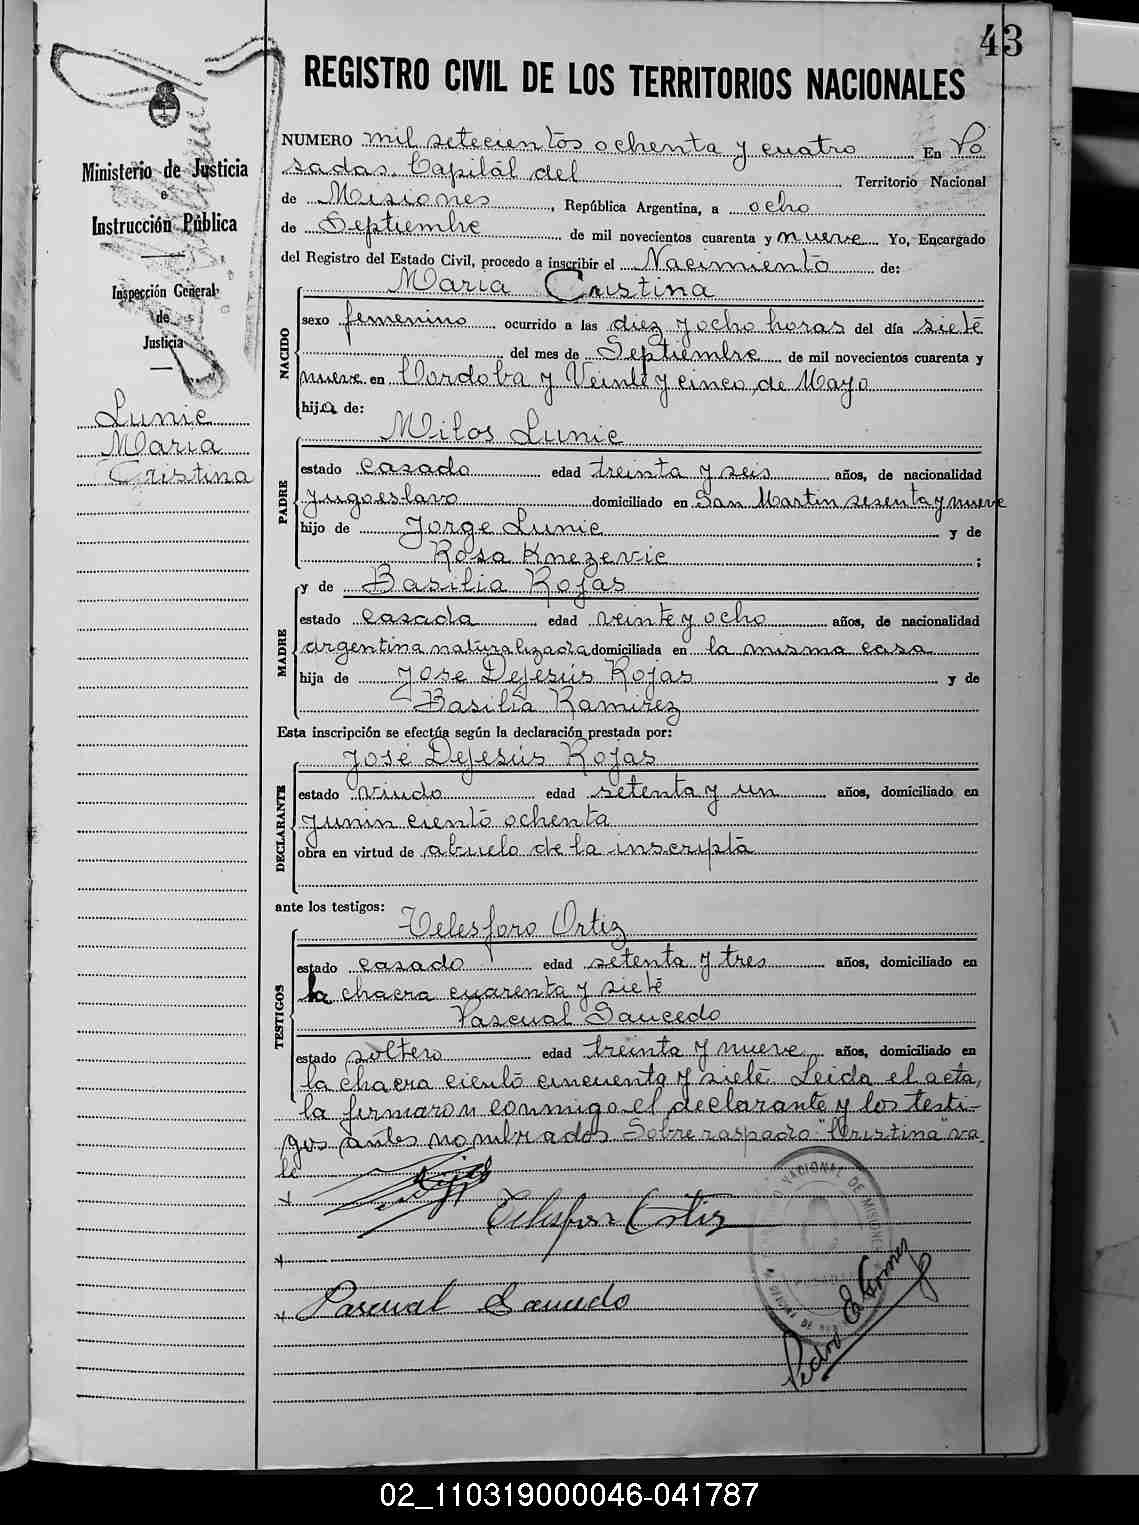 43
REGISTRO CIVIL DE LOS TERRITORIOS NACIONALES
Ministerio de Justicia
e
Instrucción Pública
Inspección General
de
Justicia
Lunic
Maria
Cristina
NUMERO mil setecientos ochenta y cuatro En Po
sadas. Capitál del Territorio Nacional
de Misiones, República Argentina, a ocho
de Septiembre de mil novecientos cuarenta y nueve Yo, Encargado
del Registro del Estado Civil, procedo a inscribir el Nacimiento de:
Maria Cristina
NACIDO
sexo femenino ocurrido a las diez y ocho horas del día siete
del mes de Septiembre de mil novecientos cuarenta y
nueve en Cordoba y Veinte y cinco de Mayo
hija de:
Milos Lunic
PADRE
estado casado edad treinta y seis años, de nacionalidad
yugoeslavo domiciliado en San Martin sesenta y nueve
hijo de Jorge Lunic y de
Rosa Knezevic ;
y de Basilia Rojas
MADRE
estado casada edad veinte y ocho años, de nacionalidad
argentina naturalizada domiciliada en la misma casa
hija de José Dejesús Rojas y de
Basilia Ramirez
Esta inscripción se efectúa según la declaración prestada por:
José Dejesús Rojas
DECLARANTE
estado viudo edad setenta y un años, domiciliado en
Junin ciento ochenta
obra en virtud de abuelo de la inscripta
ante los testigos:
Telesforo Ortiz
TESTIGOS
estado casado edad setenta y tres años, domiciliado en
la chacra cuarenta y siete
Pascual Saucedo
estado soltero edad treinta y nueve años, domiciliado en
la chacra ciento cincuenta y siete Leida el acta,
la firmaron conmigo el declarante y los testi-
gos antes nombrados Sobre raspado "Cristina" va
le
Telesforo Ortiz
Pascual Saucedo
NACIONAL DE MISIONES
Pedro E. Gomez
02_110319000046-041787